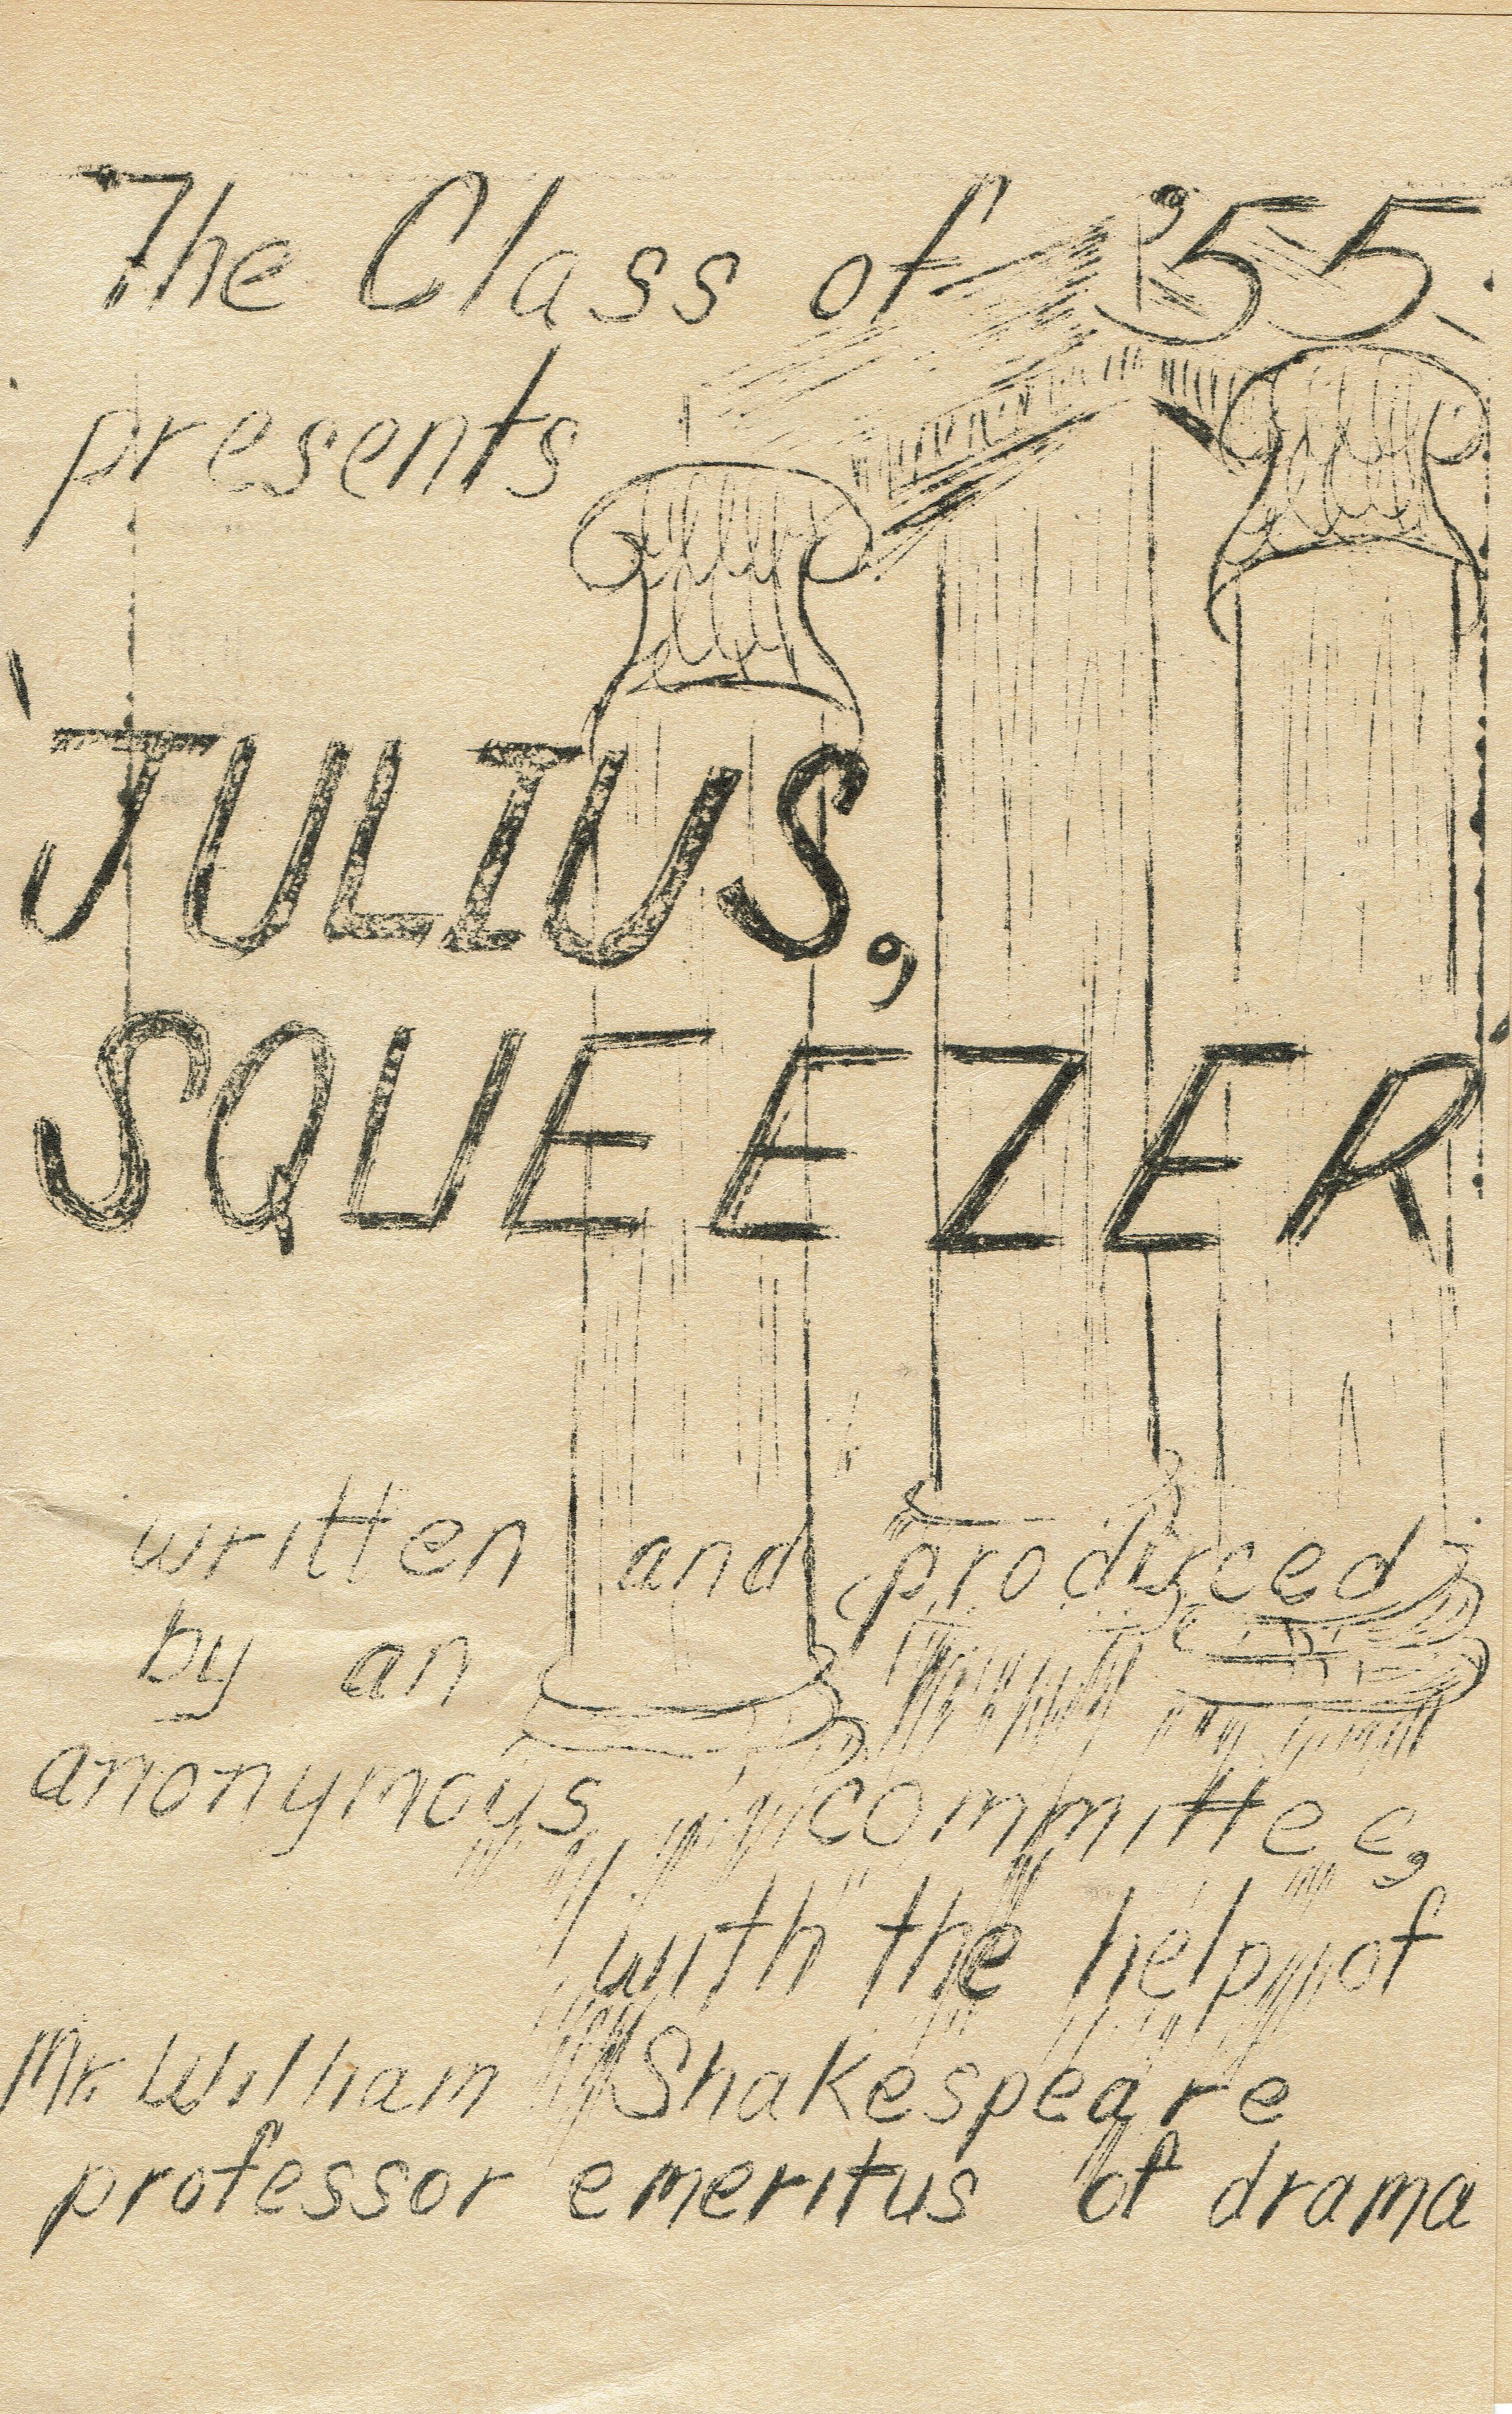 The Class of '55
presents
'JULIUS,
SQUEEZER'
written and produced
by an
anonymous committee,
with the help of
Mr. William Shakespeare
professor emeritus of drama